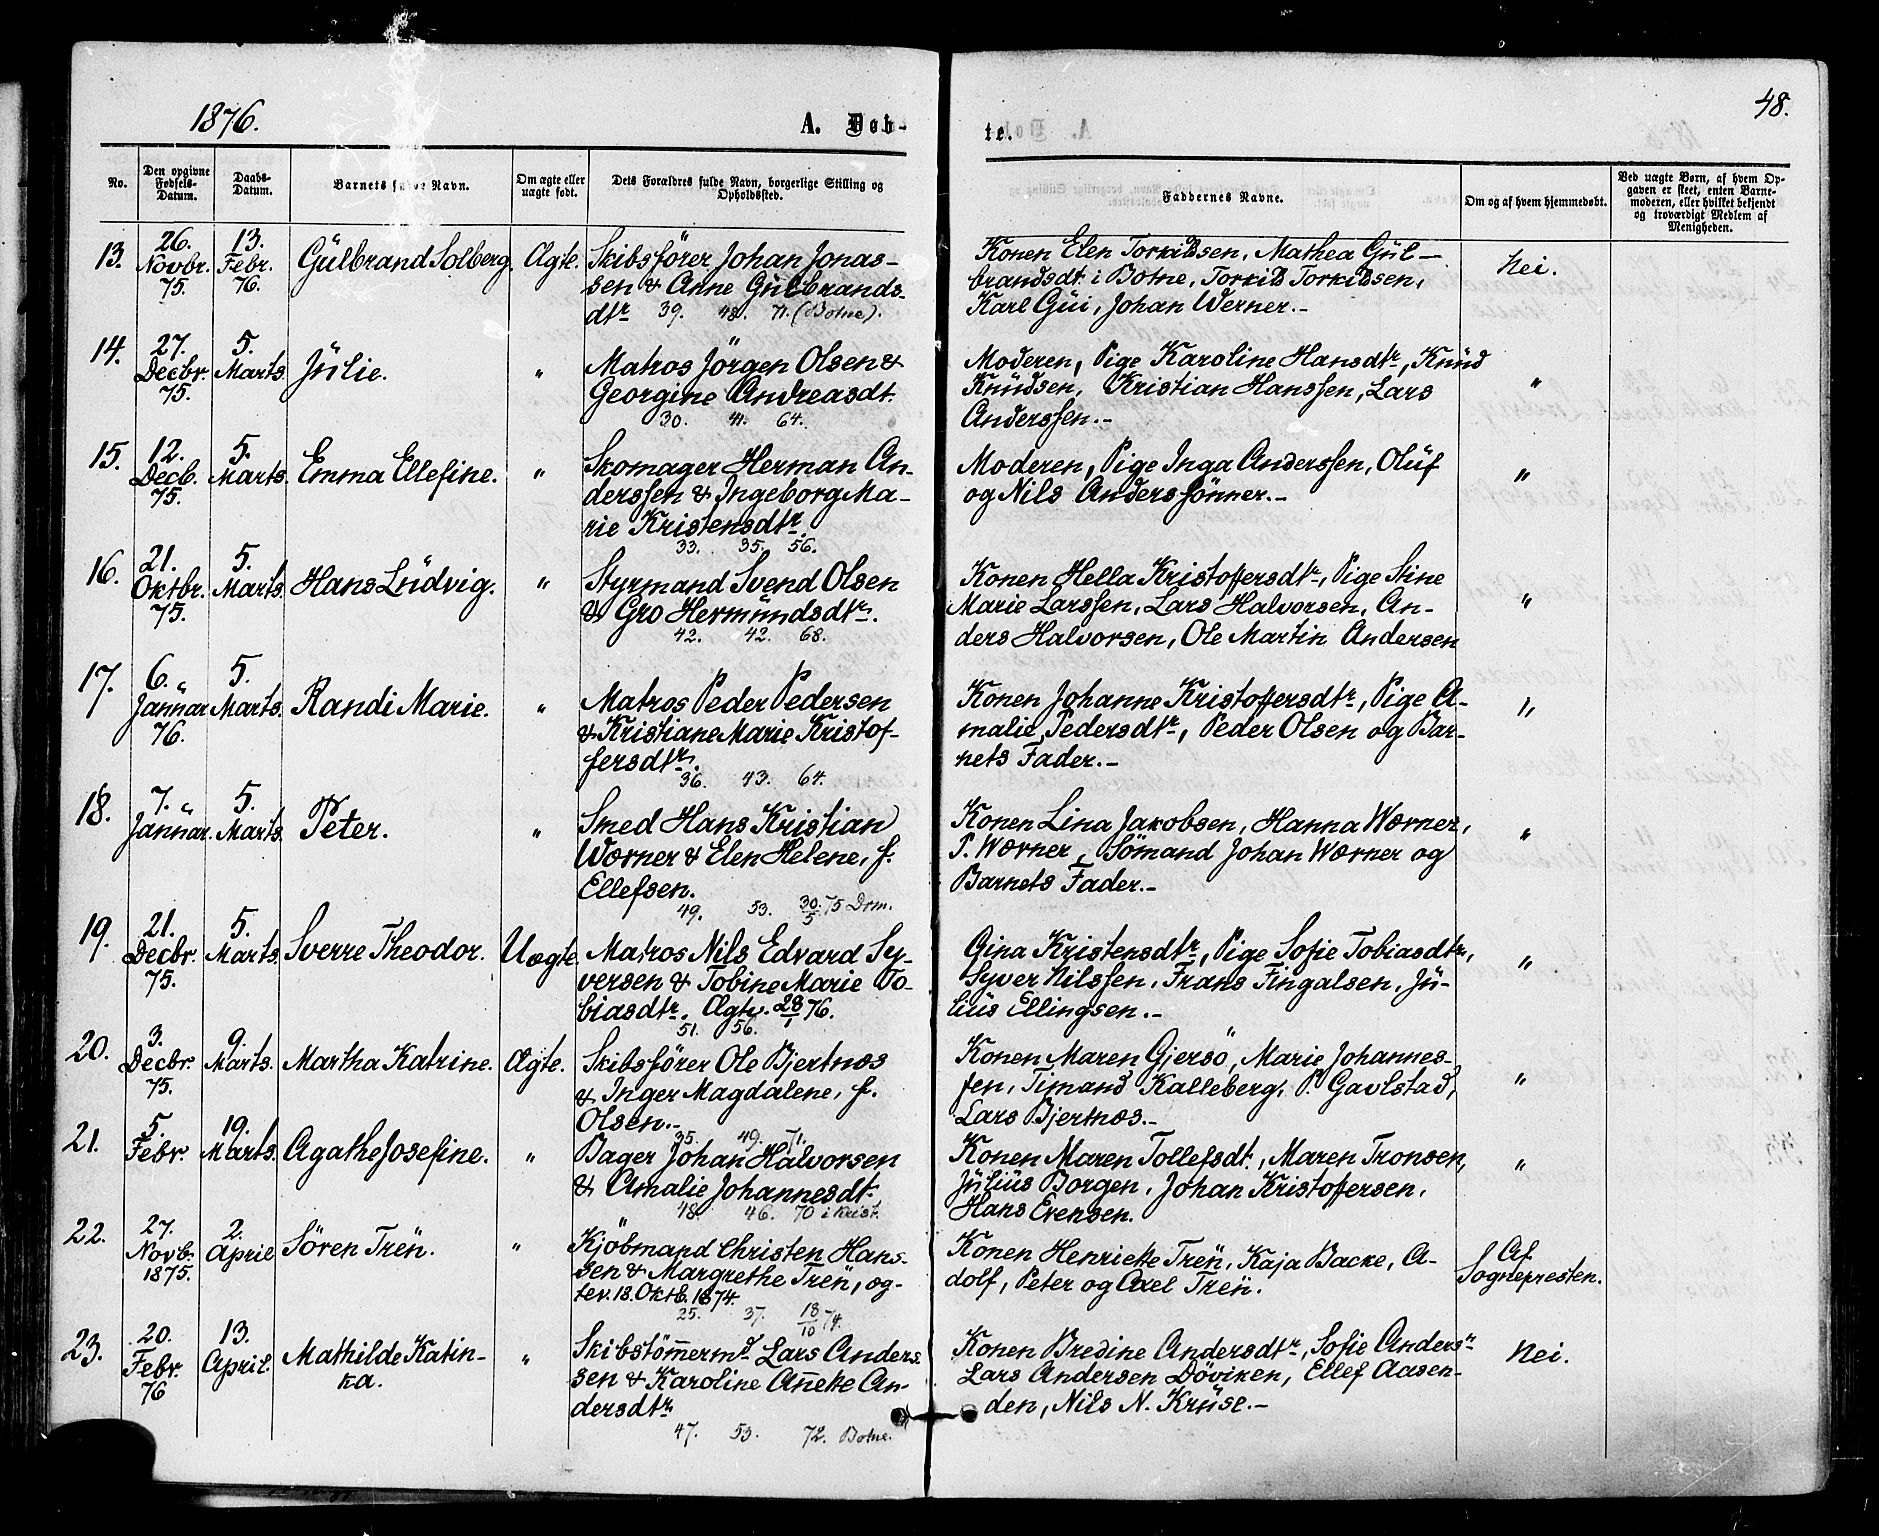 1876.
A. Døb-
te.
48.
No.
Den opgivne Fødsels-Datum.
Daabs-Datum.
Barnets fulde Navn.
Om ægte eller uægte født.
Dets Forældres fulde Navn, borgerlige Stilling og Opholdssted.
Faddernes Navne.
Om og af hvem hjemmedøbt.
Ved uægte Børn, af hvem Opgaven er skeet, enten Barnemoderen, eller hvilket bekjendt og troværdigt Medlem af Menigheden.
13.
26. Novbr. 75.
13. Febr. 76.
Gülbrand Solberg.
Ægte.
Skibsförer Johan Jonas-
sen & Anne Gülbrands-
dtr 39. 48. 71. (Botne).
Konen Elen Torkildsen, Mathea Gül-
brandsdt. i Botne, Torkild Torkildsen,
Karl Güi, Johan Werner.-
Nei.
14.
27. Decbr. 75.
5. Marts.
Jülie.
"
Matros Jörgen Olsen &
Georgine Andreasdt.
30. 41. 64.
Moderen, Pige Karoline Hansdtr, Knüd
Knüdsen, Kristian Hanssen, Lars
Anderssen.-
"
15.
12. Decb. 75.
5. Marts.
Emma Ellefine.
"
Skomager Herman An-
derssen & Ingeborg Ma-
rie Kristensdtr.
33. 35. 56.
Moderen, Pige Inga Anderssen, Olüf
og Nils Anderssönner.-
"
16.
21. Oktbr. 75.
5. Marts.
Hans Lüdvig.
"
Styrmand Svend Olsen
& Gro Hermündsdtr.
42. 42. 68.
Konen Hella Kristoffersdtr, Pige Stine
Marie Larssen, Lars Halvorsen, An-
ders Halvorsen, Ole Martin Andersen
"
17.
6. Janüar 76.
5. Marts.
Randi Marie.
"
Matros Peder Pedersen
& Kristiane Marie Kristof-
fersdtr.
36. 43. 64.
Konen Johanne Kristoffersdtr, Pige A-
malie Pedersdtr, Peder Olsen og Bar-
nets Fader.-
"
18.
7. Janüar.
5. Marts.
Peter.
"
Smed Hans Kristian
Wærner & Elen Helene, f.
Ellefsen.
49. 53. 30/5 75 Drm.
Konen Lina Jakobsen, Hanna Wærner,
P. Wærner, Sömand Johan Wærner og
Barnets Fader.-
"
19.
21. Decbr. 75.
5. Marts.
Sverre Theodor.
Uægte.
Matros Nils Edvard Sy-
versen & Tobine Marie To-
biasdtr. Ægtv. 28/1 76.
51. 56.
Gina Kristensdtr, Pige Sofie Tobiasdtr,
Syver Nilssen, Frans Fingalsen, Jü-
lius Ellingsen.-
"
20.
3. Decbr. 75.
9. Marts.
Martha Katrine.
Ægte.
Skibsförer Ole Bjertnæs
& Inger Magdalene, f.
Olsen.-
35. 49. 71.
Konen Maren Gjersö, Marie Johannes-
sen, Timand Kalleberg, P. Gavlstad,
Lars Bjertnæs.-
"
21.
5. Febr.
19. Marts.
Agathe Josefine.
"
Bager Johan Halvorsen
& Amalie Johannesdt.
48. 46. 70 i Krist.
Konen Maren Tollefsdt., Maren Tronsen,
Jülius Borgen, Johan Kristoffersen,
Hans Evensen.
"
22.
27. Novb. 1875.
2. April
Sören Treü.
"
Kjöbmand Christen Hans-
sen & Margrethe Treü, æg-
tev. 18. Oktb. 1874.
25. 37. 18/10 74.
Konen Henriette Treü, Kaja Backe, A-
dolf, Peter og Axel Treü.
Af Sognepresten.
23.
20. Febr. 76
13. April.
Mathilde Katin-
ka.
"
Skibstömmermd. Lars Anders-
sen & Karoline Anette An-
dersdtr.
47. 53. 72. Botne.
Konen Bredine Andersdtr, Sofie Andersn
Lars Andersen Döviken, Ellef Aasen-
den, Nils N. Krüse.-
Nei.